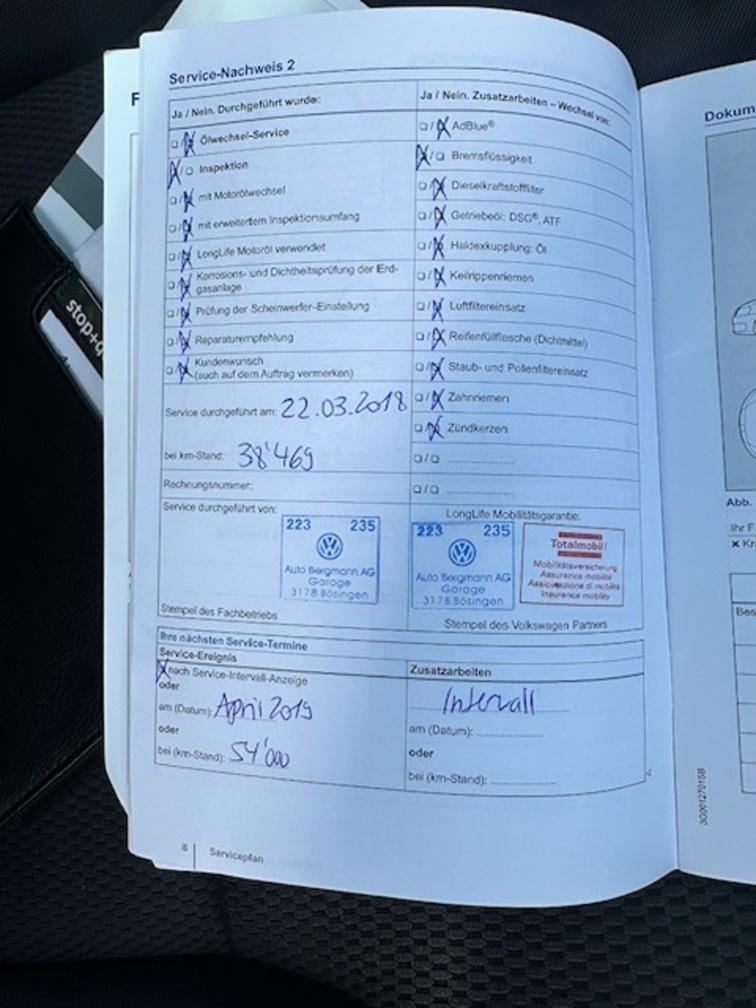 Service-Nachweis 2
Ja / Nein. Durchgeführt wurde:
☐/☒ Ölwechsel-Service
☒/☐ Inspektion
☐/☒ mit Motorölwechsel
☐/☒ mit erweitertem Inspektionsumfang
☐/☒ LongLife Motoröl verwendet
☐/☒ Korrosions- und Dichtheitsprüfung der Erd-
gasanlage
☐/☒ Prüfung der Scheinwerfer-Einstellung
☐/☒ Reparaturempfehlung
☐/☒ Kundenwunsch
(auch auf dem Auftrag vermerken)
Service durchgeführt am: 22.03.2018
bei km-Stand: 38'469
Rechnungsnummer:
Service durchgeführt von:
223 235
Auto Bergmann AG
Garage
3178 Bösingen
Stempel des Fachbetriebs
Ja / Nein. Zusatzarbeiten – Wechsel von:
☐/☒ AdBlue®
☒/☐ Bremsflüssigkeit
☐/☒ Dieselkraftstofffilter
☐/☒ Getriebeöl: DSG®, ATF
☐/☒ Haldexkupplung: Öl
☐/☒ Keilrippenriemen
☐/☒ Luftfiltereinsatz
☐/☒ Reifenfüllflasche (Dichtmittel)
☐/☒ Staub- und Pollenfiltereinsatz
☐/☒ Zahnriemen
☐/☒ Zündkerzen
☐/☐ ....................
☐/☐ ....................
LongLife Mobilitätsgarantie:
223 235
Auto Bergmann AG
Garage
3178 Bösingen
Totalmobil!
Mobilitätsversicherung
Assurance mobilité
Assicurazione di mobilità
Insurance mobility
Stempel des Volkswagen Partners
Ihre nächsten Service-Termine
Service-Ereignis
☒ nach Service-Intervall-Anzeige
oder
am (Datum): April 2019
oder
bei (km-Stand): 54'000
Zusatzarbeiten
Intervall
am (Datum): ....................
oder
bei (km-Stand): ....................
8 Serviceplan
F
stop+g
Dokum
Abb.
Ihr F
× Kr
Bes
3G0012701SB